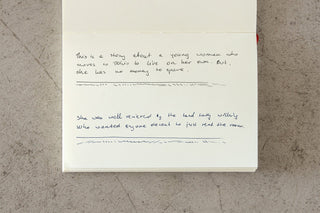 This is a story about a young woman who
moves to Paris to live on her own. But,
she has no money to spare.
She was well received by the land lady
who wanted anyone decent to just rent the room.